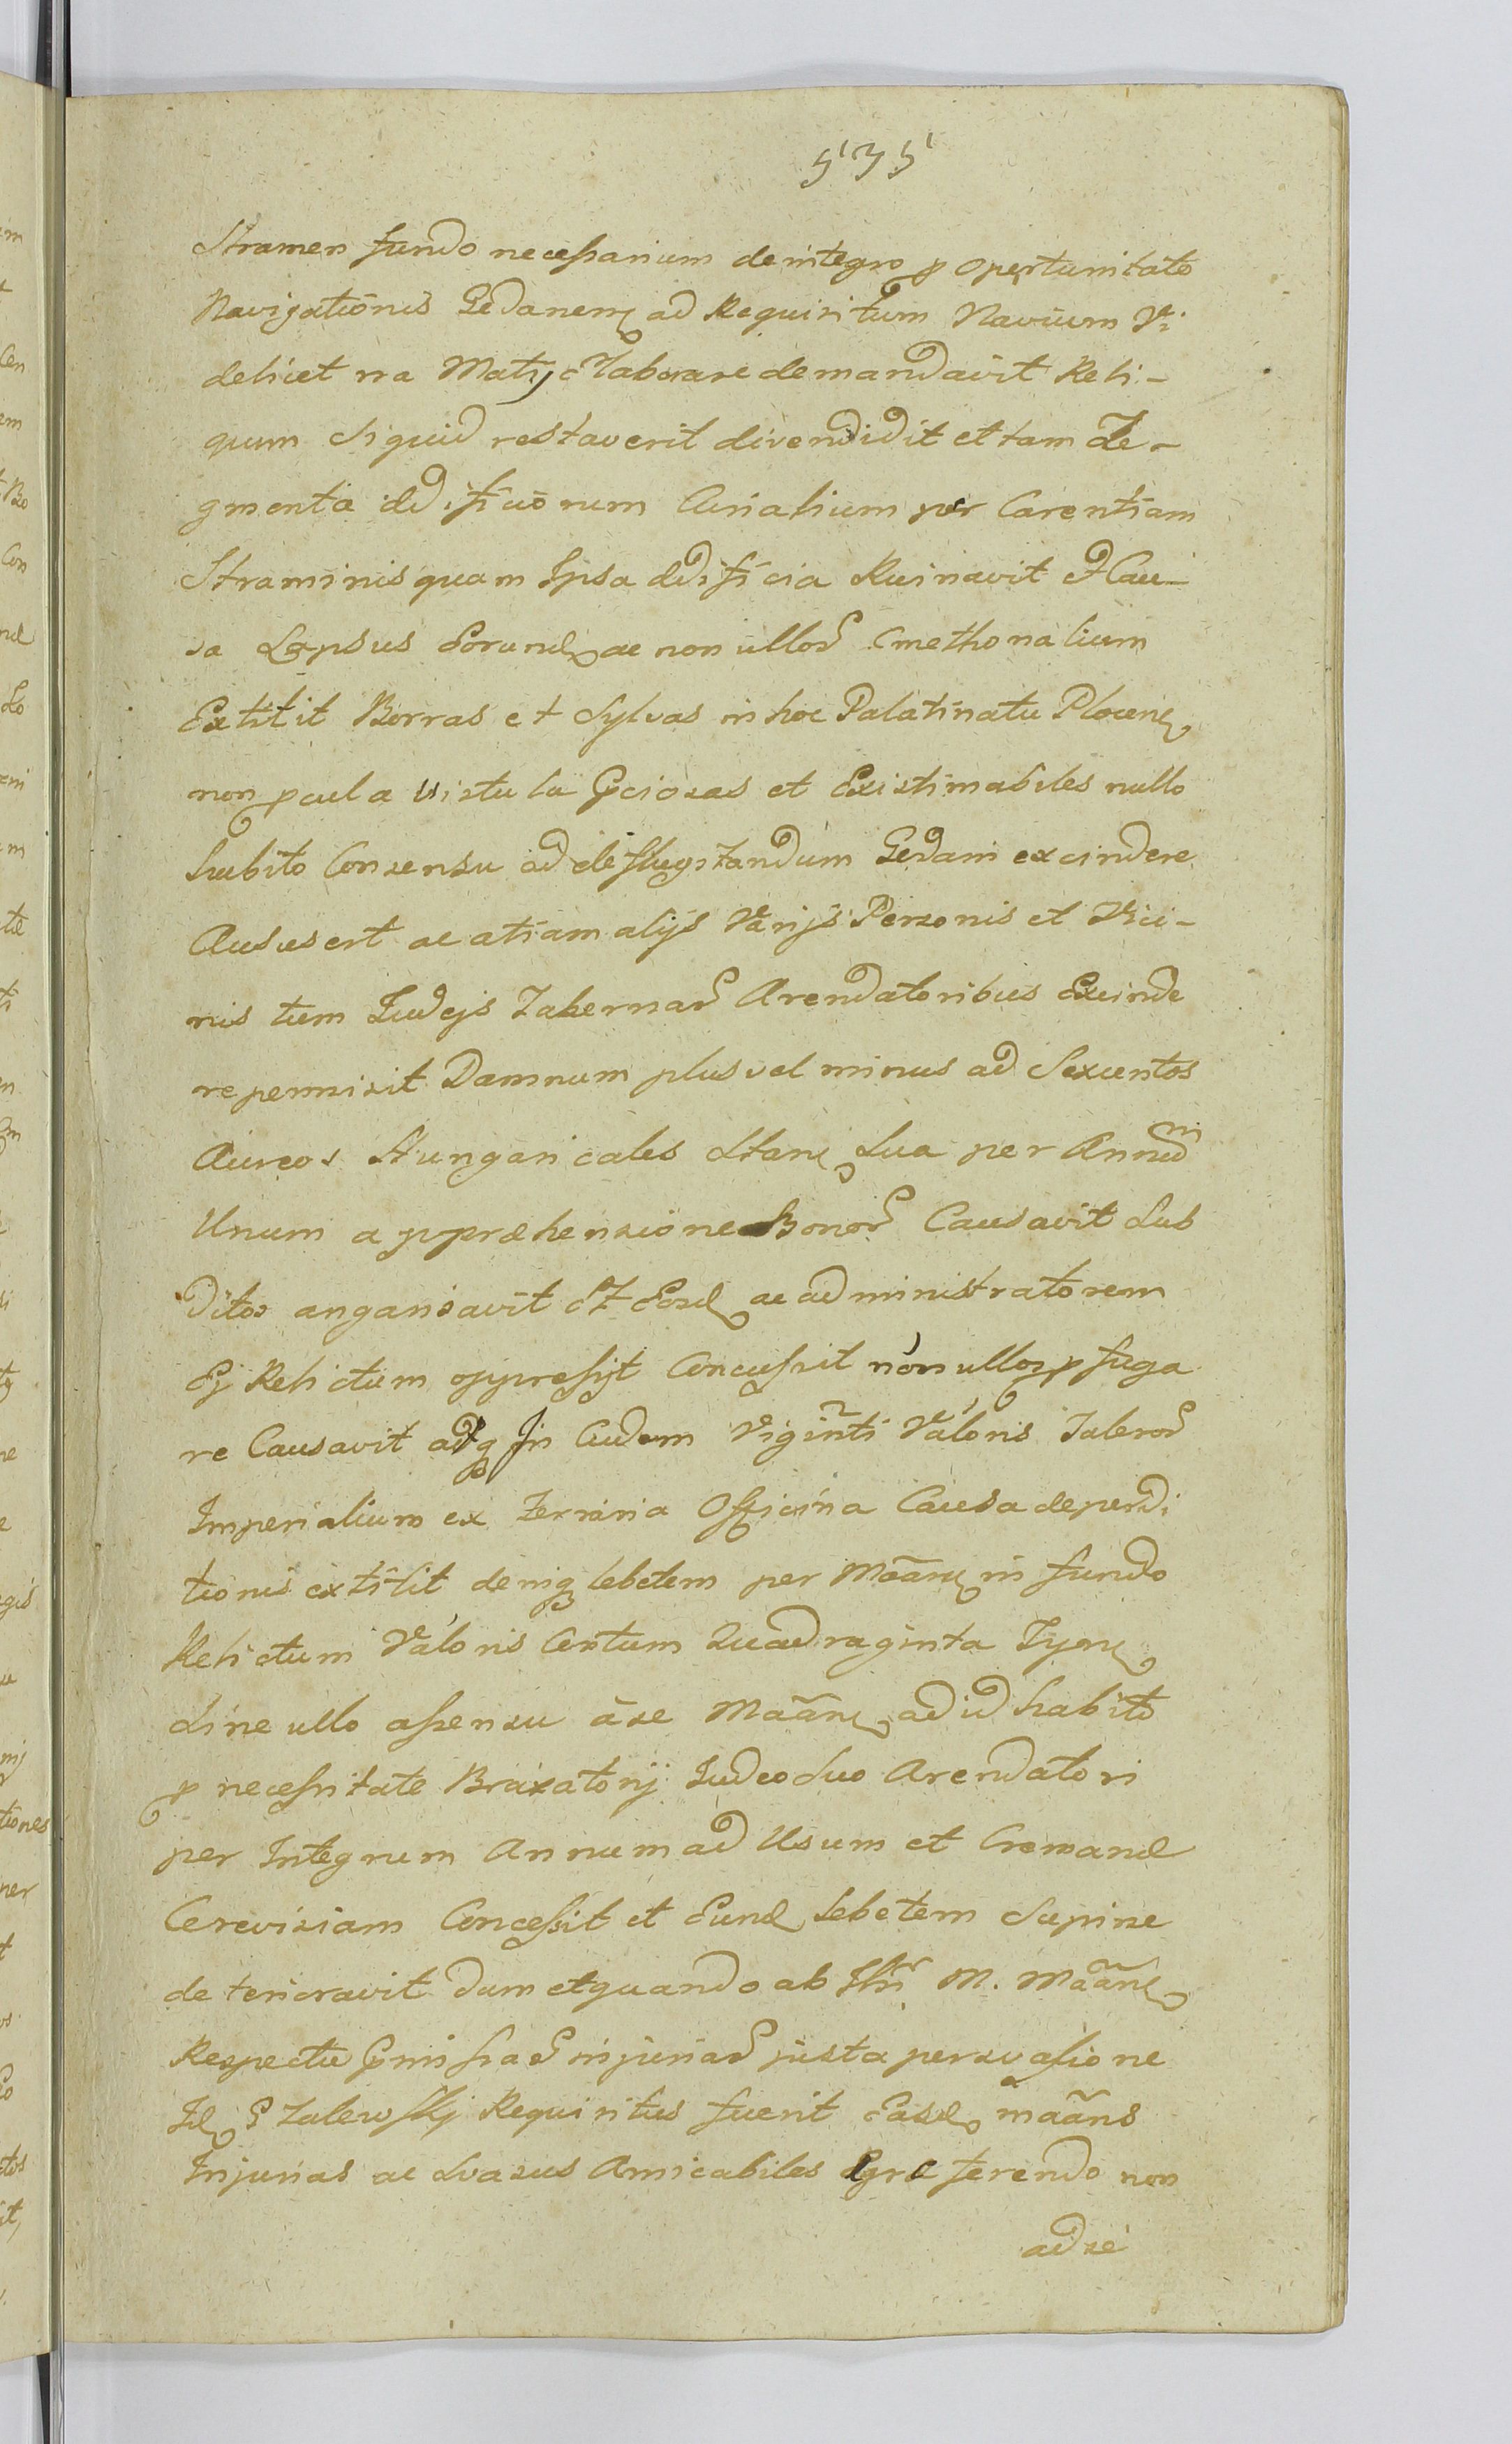 535
Stramen fundo necessarium deintegro p opertunitate
Navigationis Gedanens ad Requisitum Navium Vi
delicet na Maty elaborare demandavit Reli-
quum siquid restaverit divendidit et tam Te-
gmenta ædificiorum Curialium per Carentiam
Straminis quam Ipsa ædificia Ruinavit et Cau-
sa Lapsus Eorund ac non ullor Cmethonalium
Extitit Borras et Sylvas in hoc Palatinatu Plocens
non pcul a Vistula pciosas et Existimabiles nullo
habito Consensu ad deflugitandum Gedani excindere
Ausus est ac etiam alijs Varijs Personis et Vici-
nis tum Judejs Tabernar Arendatoribus Excinde
re permisit Damnum plus vel minus ad Sexcentos
Aureos Hungaricales Stans Sua per Annum
Unum apprœhensione Bonor Causavit Sub
ditos angarisavit Et Eosd ac administratorem
Ej Relictum oppressijt Concussit nonullos pfuga
re Causavit adq In Cudem Viginti Valoris Taleror
Imperialium ex Ferraria Officina Causa deperdi
tionis extitit deniq lebetem per Mãane in fundo
Relictum Valoris Centum Quadraginta Tynf
Sine ullo assensu àse Maãne ad id habito
p necessitate Braxatorij Judeo Suo Arendatori
per Integrum Annum ad Usum et Cremand
Cerevisiam Concessit et Eund lebetem Supine
deterioravit dum et quando ab Illri M. Maãne
Respectu pmissar injuriar juxta persvasione
Id G Zalewskj Requisitus fuerit Easd maãns
Injurias ac Svasus Amicabiles Egre ferendo non
ad se